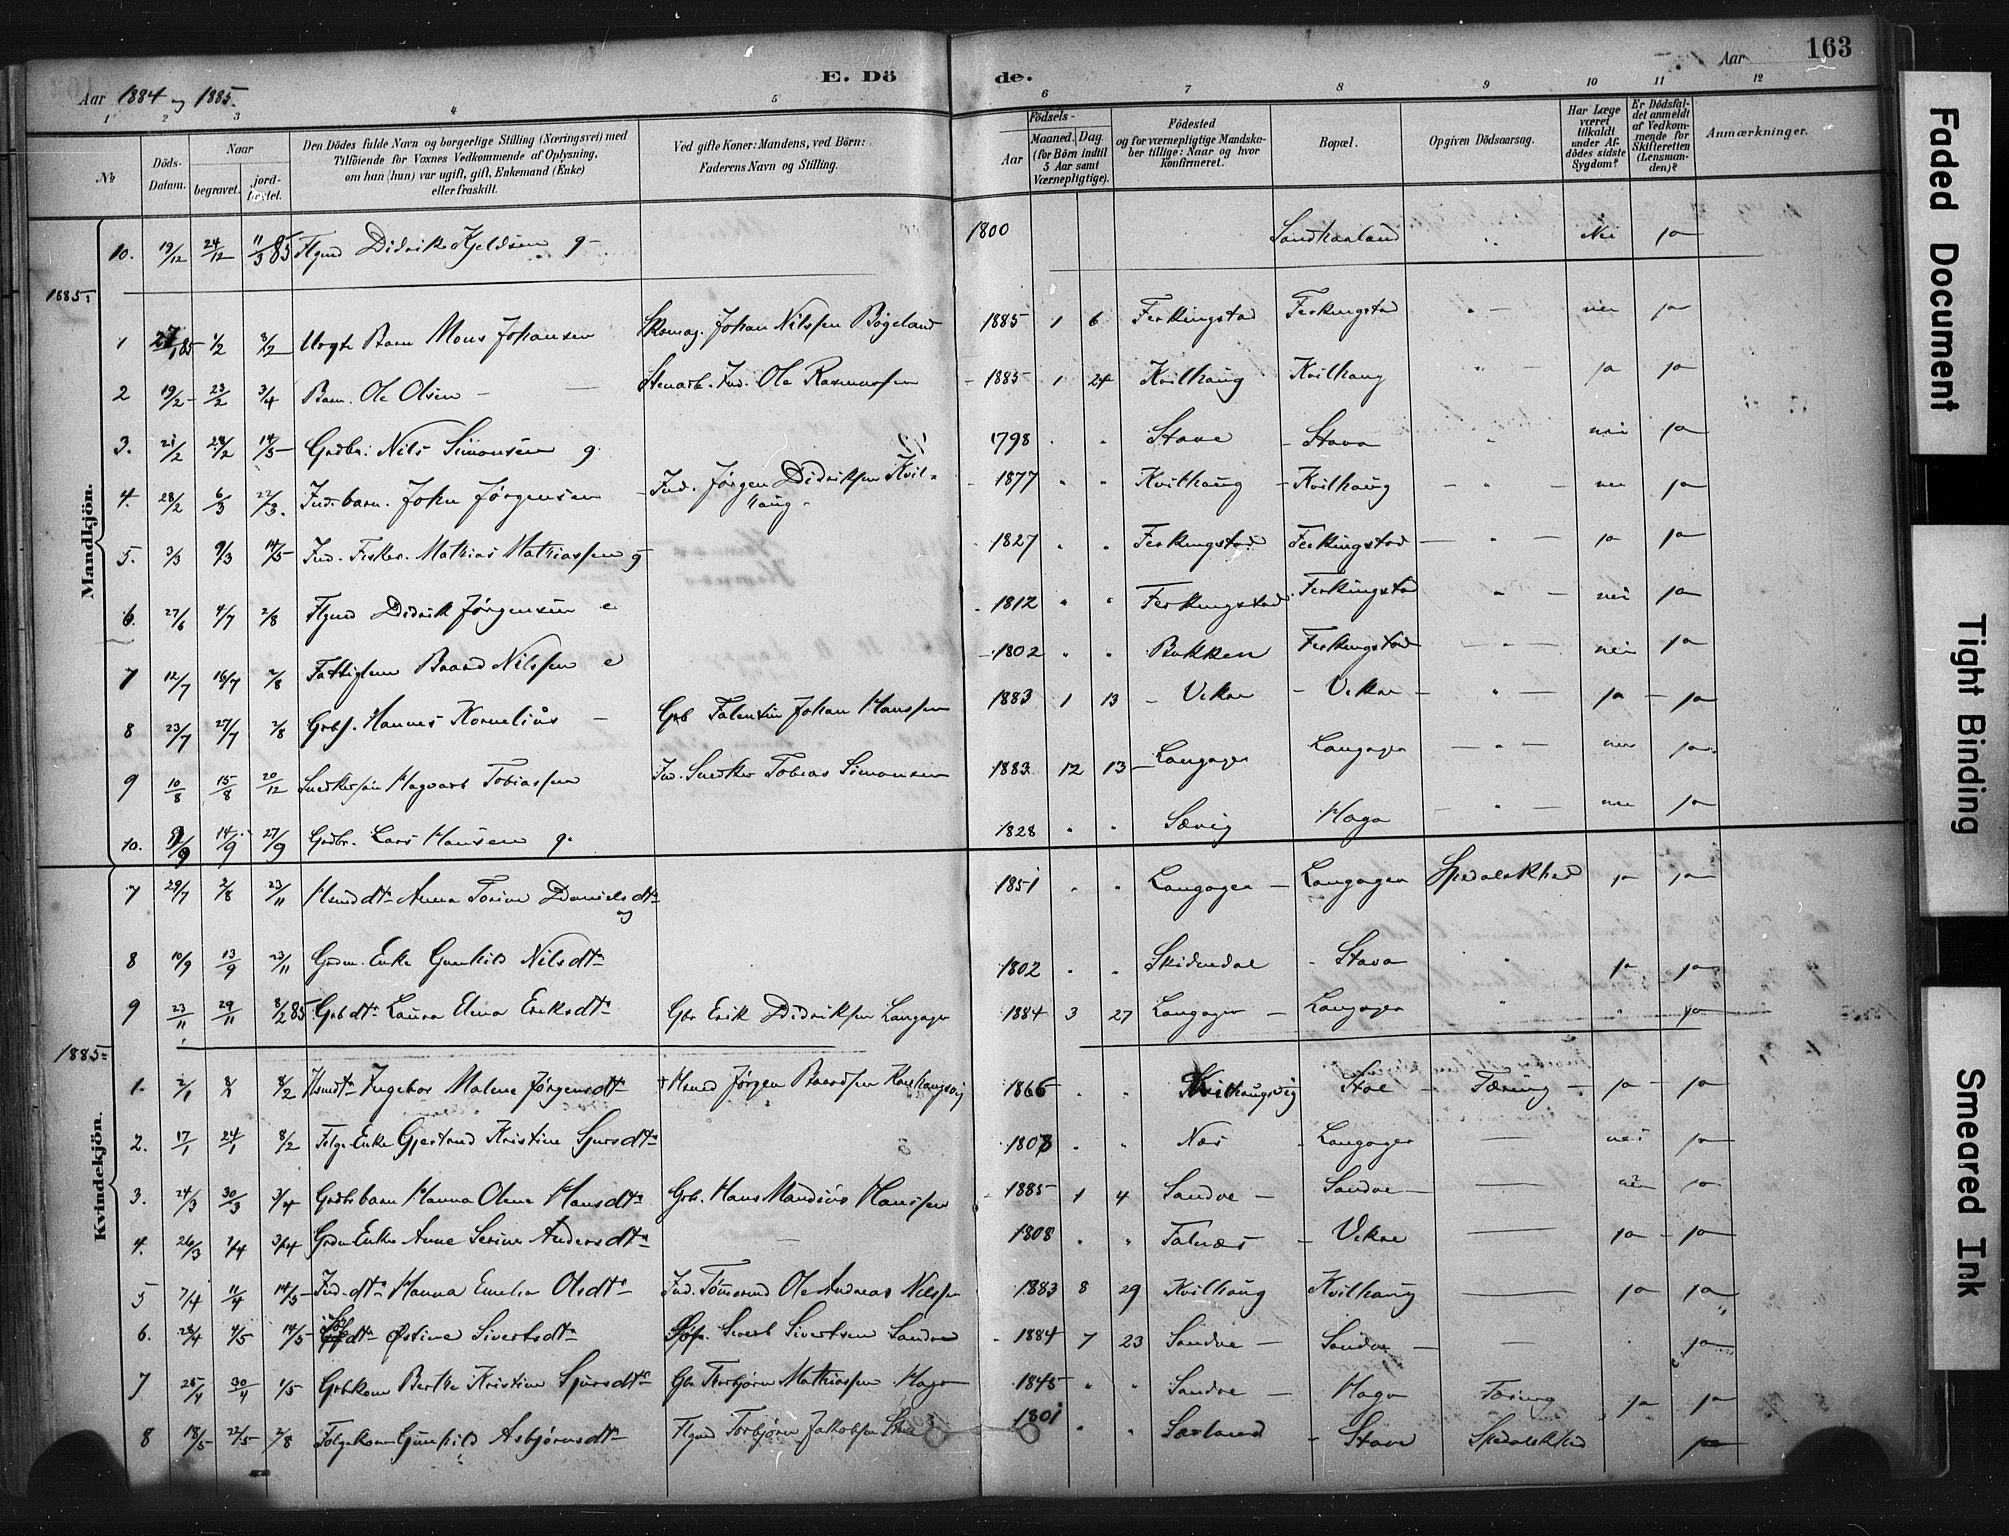 Aar 1884 og 1885.
E. Döde.
Aar
163
1 2 3 4 5 6 7 8 9 10 11 12
No
Döds-Datum.
Naar
begravet. jord-fæstet.
Den Dödes fulde Navn og borgerlige Stilling (Næringsvei) med
Tilföiende for Voxnes Vedkommende af Oplysning,
om han (hun) var ugift, gift, Enkemand (Enke)
eller fraskilt.
Ved gifte Koner: Mandens, ved Börn:
Faderens Navn og Stilling.
Födsels-
Aar
Maaned. Dag.
(for Börn indtil
5 Aar samt
Værnepligtige).
Födested
og for værnepligtige Mandska-
ber tillige: Naar og hvor
konfirmeret.
Bopæl.
Opgiven Dödsaarsag.
Har Læge
været
tilkaldt
under Af-
dödes sidste
Sygdom?
Er Dödsfal-
det anmeldt
af Vedkom-
mende for
Skifteretten
(Lensman-
den)?
Anmærkninger.
Mandkjön.
10. 19/12 24/12 11/3 85 Flgmd Didrik Kjeldsen g - 1800 Sandhaaland Nei ja
1885:
1 27/1 85 1/2 8/2 Barn Mons Johansen Skomag. Johan Nilssen Bögeland 1885 1 6 Ferkingstad Ferkingstad " nei ja
2 19/2 23/2 3/4 Barn Ole Olsen - Stenarb. Ind. Ole Rasmussen 1885 1 24 Kvilhaug Kvilhaug " ja ja
3. 21/2 28/2 14/5 Grdbr. Nils Simonsen g. 1798 " " Stave Stava " nei ja
4. 28/2 6/3 22/3. Ind. barn. John Jörgensen Ind. Jörgen Didriksen Kvil-
haug - 1877 " " Kvilhaug Kvilhaug " nei ja
5. 3/3 9/3 14/5 Ind. Fisker. Mathias Mathiassen g 1827 " " Ferkingstad Ferkingstad " ja ja
6. 27/6 4/7 2/8 Flgmd Didrik Jörgensen e 1812 " " Ferkingstad Ferkingstad " nei ja
7 12/7 16/7 2/8 Fattiglem Baard Nilssen e 1802 " " Bakken Ferkingstad " nei ja
8 23/7 27/7 2/8 Grbs. Hannes Kornelius - Grb Falentin Johan Hanssen 1883 1 13 Vikre Vikre " ja ja
9 10/8 15/8 20/12 Snedkersön Hagvart Tobiassen Ind. Snedker Tobias Simonsen 1883 12 13 Langager Langager " nei ja
10. 9/9 14/9 27/9 Grdbr. Lars Hansen g. 1828 " " Sævig Haga " nei ja
Kvindekjön.
7 29/7 2/8 23/11 Hsmd dtr Anna Torine Danielsdtr
ug 1851 " " Langager Langager Spedalskhed ja ja
8 10/9 13/9 23/11 Grdm. Enke Gunhild Nilsdtr 1802 " " Skidnedal Stava " ja ja
9 23/11 29/11 8/2 85 Grbdtr Laura Elena Eriksdtr Gbr Erik Didriksen Langager 1884 3 27 Langager Langager " " ja
1885:
1. 2/1 8/1 8/2 Hsmdtr Ingebor Malene Jörgensdtr Hsmd Jörgen Baardsen Kvilhaugsvig 1866 " " Kvilhaugsvig Stol Tæring ja ja
2. 17/1 24/1 8/2 Folge Enke Gjertrud Kristine Sjursdtr 1808 " " Næs Langager nei ja
3. 24/3 30/3 3/4 Grdbrbarn Hanna Olene Hansdtr Grb. Hans Mandius Hanssen 1885 1 4 Sandve Sandve nei ja
4. 26/3 2/4 3/4 Grdm Enke Anne Serine Andersdtr 1808 " " Falnæs Vikre ja ja
5 7/4 11/4 14/5 Ind.dtr Hanna Emelia Olsdtr Ind. Tömmermd Ole Andreas Nilssen 1883 8 29 Kvilhaug Kvilhaug ja ja
6. 28/4 4/5 14/5 dtr Østine Sivertsdtr Sivert Sivertsen Sandve 1884 7 23 Sandve Sandve ja
7 25/4 30/4 1/5 Grbkone Berthe Kristine Sjursdtr Gbr Thorbjörn Mathiassen Haga 1845 " " Sandve Haga Tæring ja ja
8 18/5 22/5 2/8 Folgekone Gunhild Asbjörnsdtr Flgmd Torbjörn Jakobsen Stava 1801 " " Saxland Stava Spedalskhed ja
Faded Document
Tight Binding
Smeared Ink